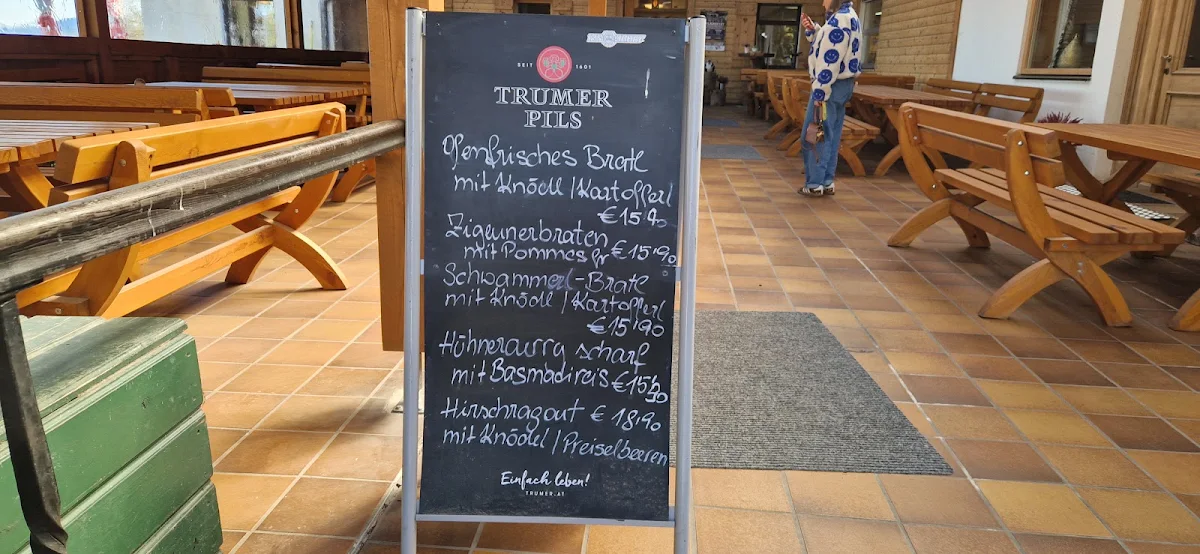 SEIT 1601
TRUMER
PILS
Ofenfrisches Bratl
mit Knödl / Kartofferl
€ 15,90
Zigeunerbraten
mit Pommes fr € 15,90
Schwammerl-Bratl
mit Knödl / Kartofferl
€ 15,90
Hühnercurry scharf
mit Basmadireis € 15,90
Hirschragout € 18,90
mit Knödel / Preiselbeeren
Einfach leben!
TRUMER.AT